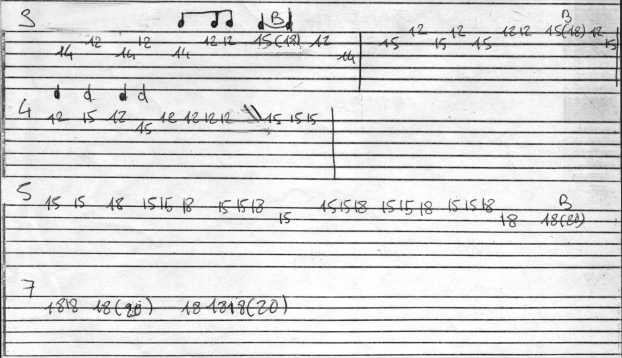 3 B B
14 12 14 12 14 12 12 15(18) 12 14 15 12 15 12 15 12 12 15(18) 12 15
4 12 15 12 15 12 12 12 12 15 15 15
5 B
15 15 18 15 15 18 15 15 18 15 15 15 18 15 15 18 15 15 18 18 18(20)
7
18 18 18(20) 18 18 18(20)